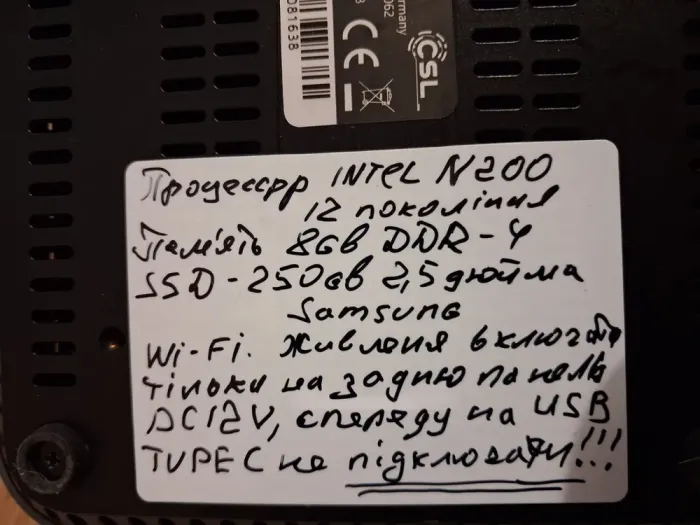 081638
CE
rmany
062
CSL
Процессрр INTEL N200
12 поколіния
Пам'ять 8GB DDR-4
SSD-250GB 2,5 дюйма
Samsung
Wi-Fi. Живленя включати
тільки на задню панель
DC12V, спереду на USB
TYPEC не підключати!!!